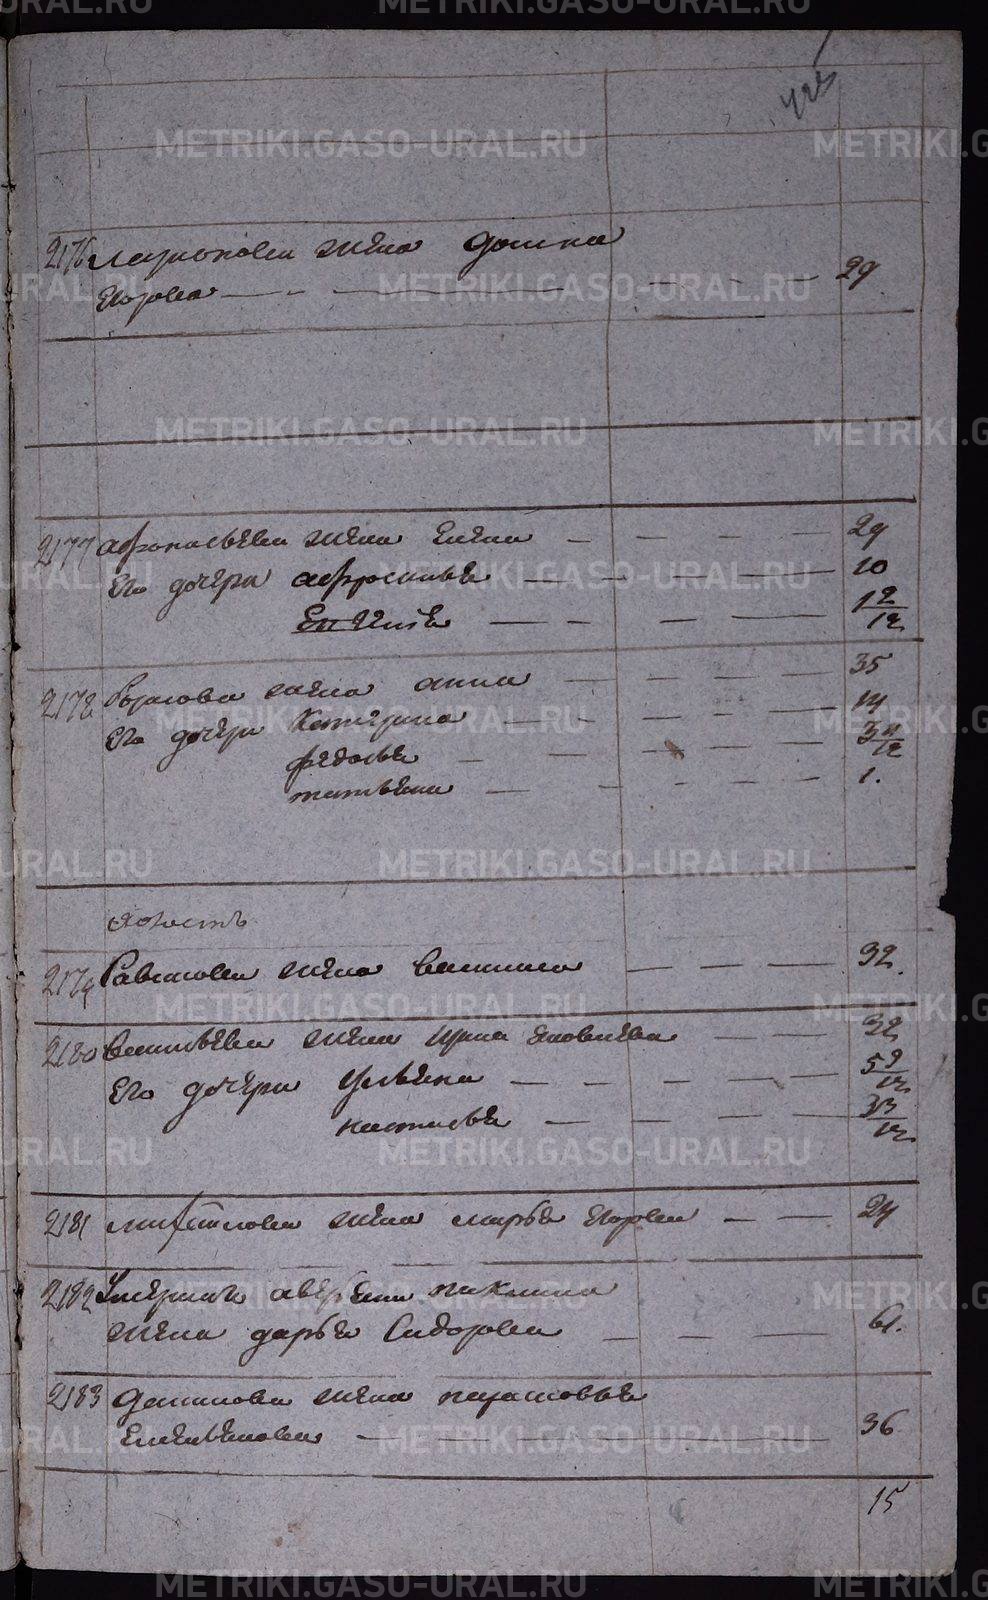 METRIKI.GASO-URAL.RU
2176 Ларионова жена Домна
Егорова 29
2177 Афонасьева жена Елена 29
Его дочери Афросинья 10
12/12
2178 Борисова жена Анна 35
Его дочери Катерина 14
Федосья 3 11/12
татьяна 1.
2179 жена Василиса 32.
2180 Васильева жена Ирина Яковлева 32
Его дочери Ульяна 5 9/12
настасья 3/12
2181 Михайлова жена марья Егорова 24
2182 Умершаго аверьяна никитина
жена дарья Сидорова 61.
2183 Данилова жена парасковья
Емельянова 36
15